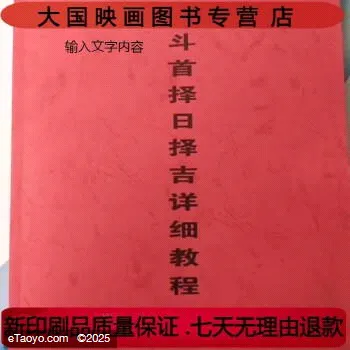 大国映画图书专营店
输入文字内容
斗首择日择吉详细教程
新印刷品质量保证.七天无理由退款
eTaoyo.com ©2025